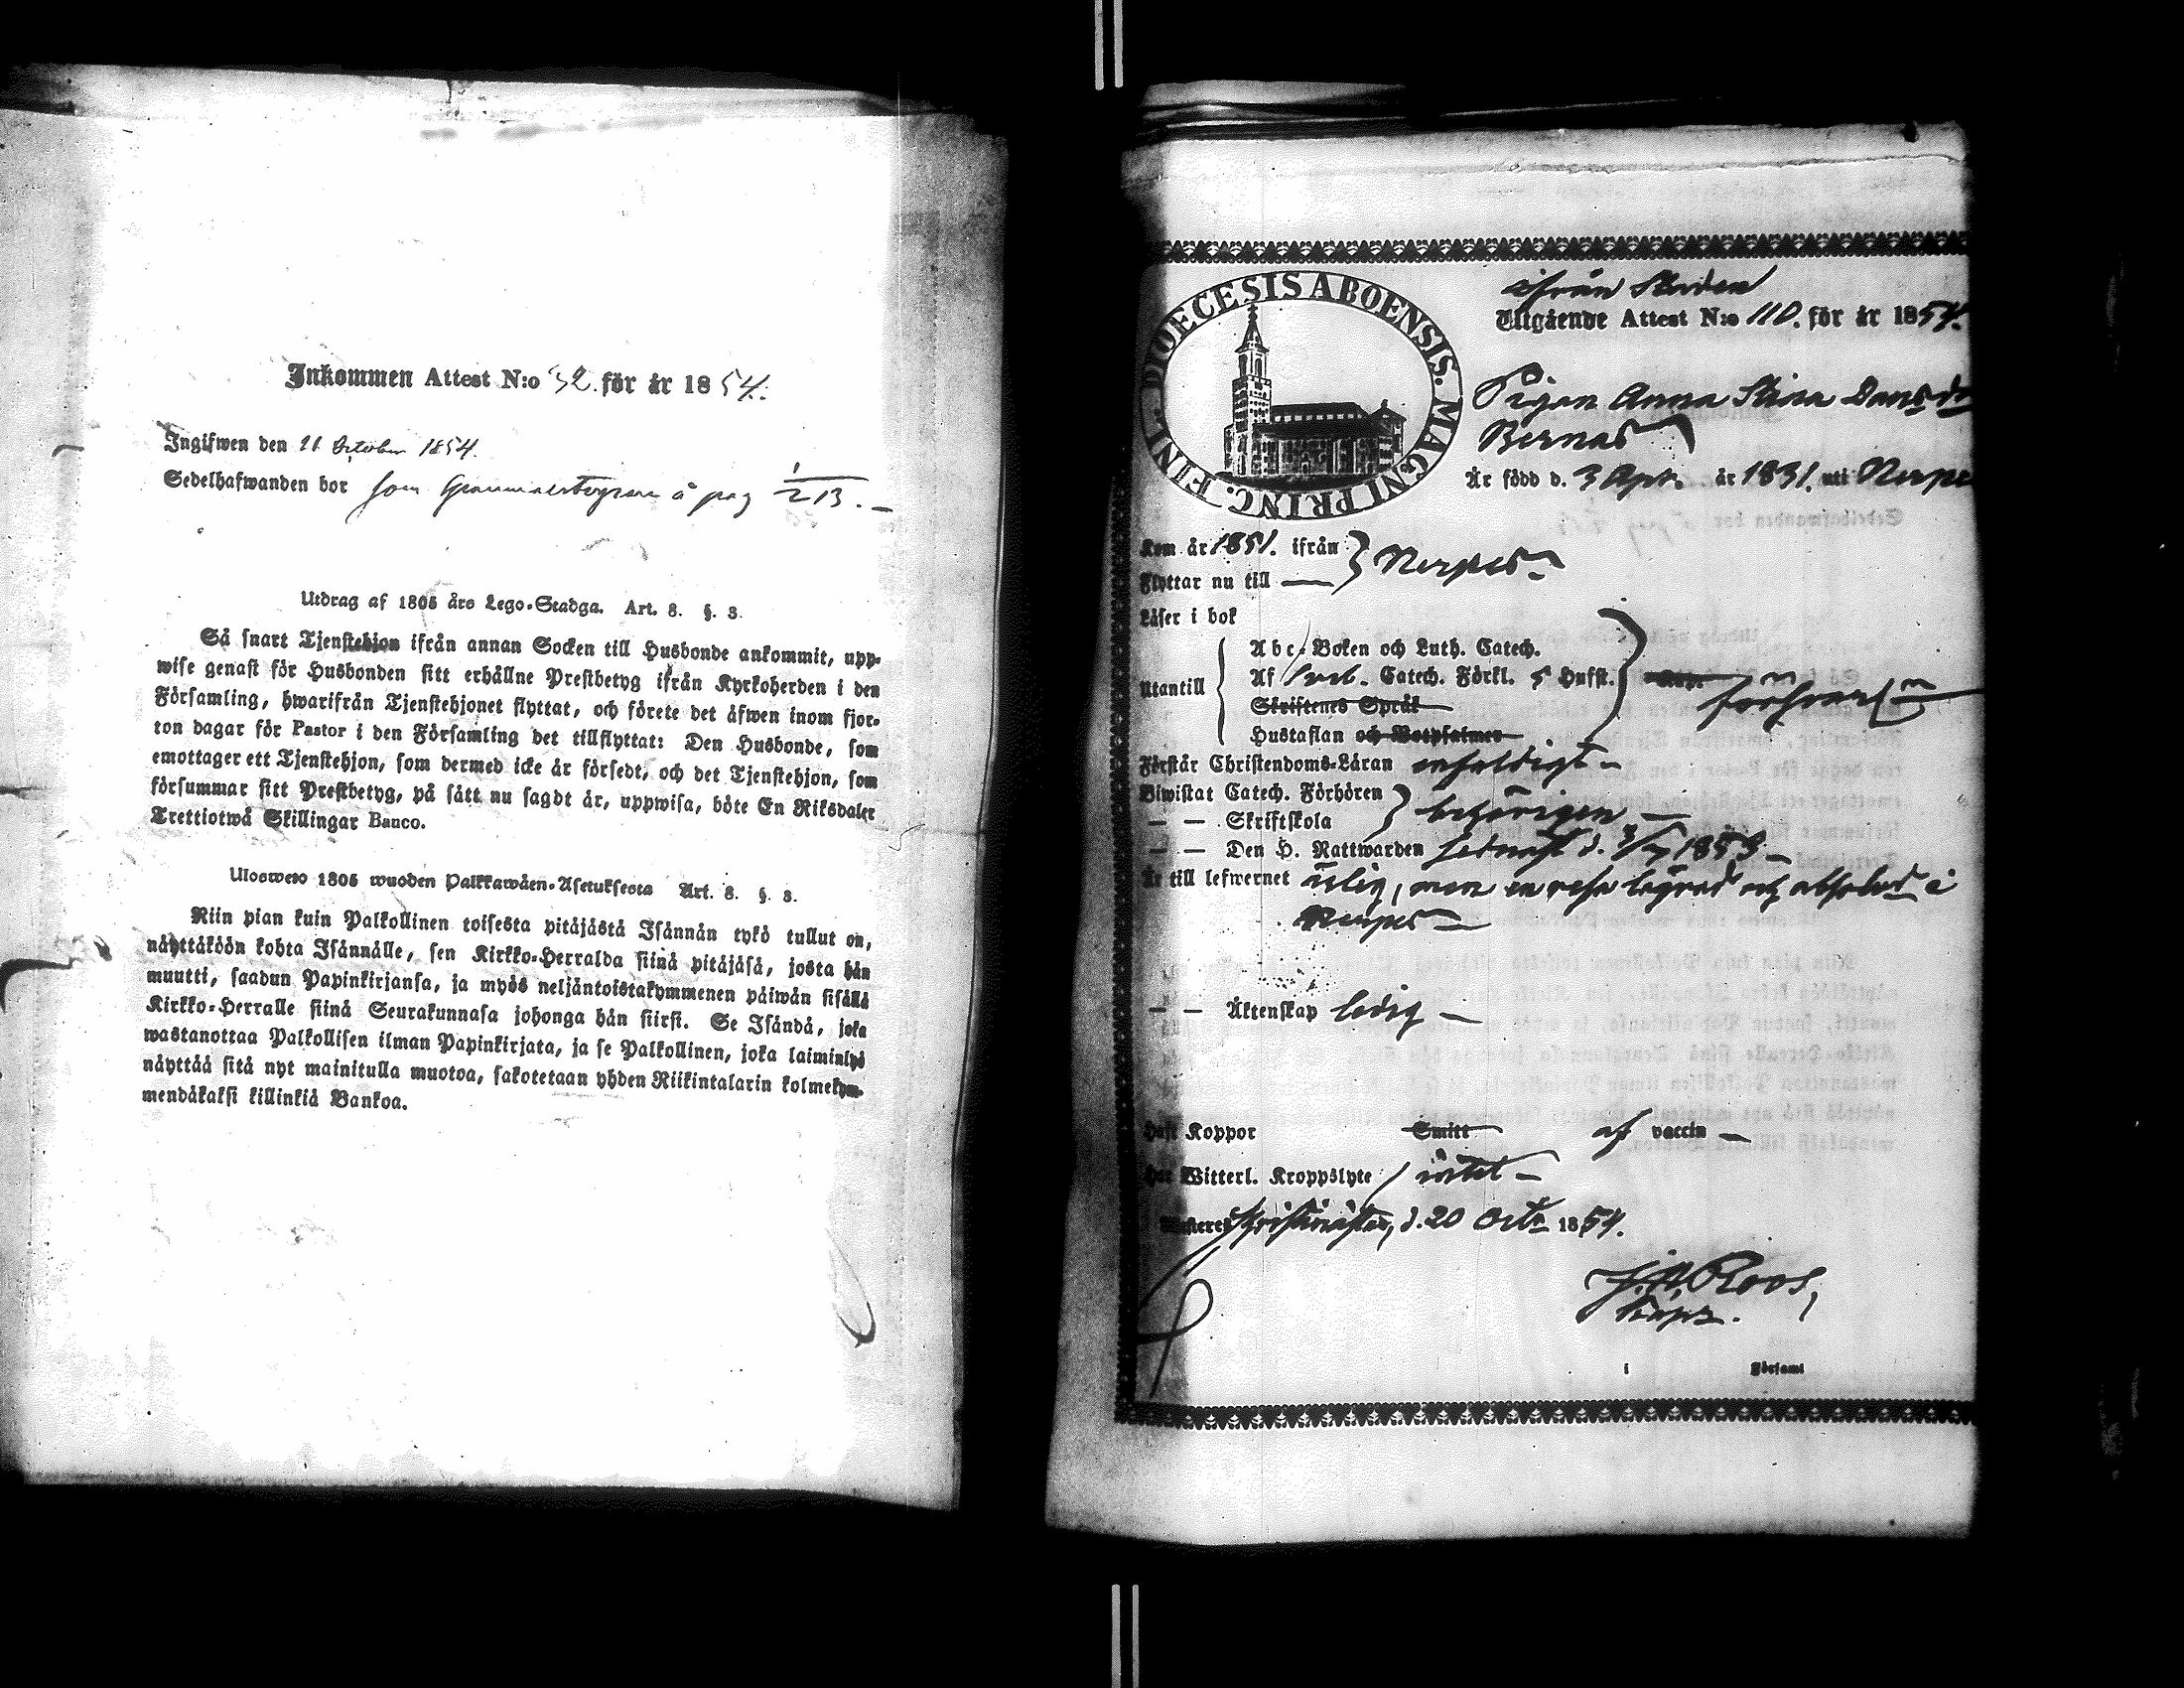 Inkommen Attest N:o 32. för år 1854.
Ingifwen den 21 October 1854.
Sedelhafwanden bor som å pag 1/213.
Utdrag af 1805 års Lego-Stadga. Art. 8. §. 3.
Så snart Tjenstehjon ifrån annan Socken till Husbonde ankommit, upp-
wise genast för Husbonden sitt erhållne Prestbetyg ifrån Kyrkoherden i den
Församling, hwarifrån Tjenstehjonet flyttat, och förete det äfwen inom fjor-
ton dagar för Pastor i den Församling det tillflyttat: Den Husbonde, som
emottager ett Tjenstehjon, som dermed icke är försedt, och det Tjenstehjon, som
försummar sitt Prestbetyg, på sätt nu sagdt är, uppwisa, böte En Riksdaler
Trettiotwå Skillingar Banco.
Uloswето 1805 wuoden Palkkawäen-Asetuksesta Art. 8. §. 3.
Niin pian kuin Palkollinen toisesta pitäjästä Isännän tykö tullut on,
näyttäköön kohta Isännälle, sen Kirkko-Herralda siinä pitäjäsä, josta hän
muutti, saadun Papinkirjansa, ja myös neljäntoistakymmenen päiwän sisällä
Kirkko-Herralle siinä Seurakunnasa johonga hän siirsi. Se Isändä, joka
wastanottaa Palkollisen ilman Papinkirjata, ja se Palkollinen, joka laiminlyö
näyttää sitä nyt mainitulla muotoa, sakotetaan yhden Riikintalarin kolmekym-
mendäkaksi killinkiä Bankoa.
DIOECESIS ABOENSIS. MAGNI PRINC. FINL.
ifrån Staden
Utgående Attest N:o 110. för år 1854.
Pigan Anna Stina Dansdr
Bernas
Är född d. 3 Apr. år 1831. uti Nerpe
Kom år 1851. ifrån
Flyttar nu till — } Nerpes
Läser i bok
Abc-Boken och Luth. Catech.
Utantill Af Sveb. Catech. Förkl. 5 Hufst. försvarl.
Skriftenes Språk
Hustaflan och Botpsalmer
Förstår Christendoms-Läran enfaldigt
Biwistat Catech. Förhören
— — Skriftskola } behörigen
— — Den H. Nattwarden sednast d. 3/7 1853
Är till lefwernet ärlig, men en resa lägrad och absolvd i
Nerpes
— — Äktenskap ledig
Haft Koppor Smitt af vaccin
Har Witterl. Kroppslyte intet
Kristinestad, d. 20 Octr 1854.
J. A. Roos,
i Församl